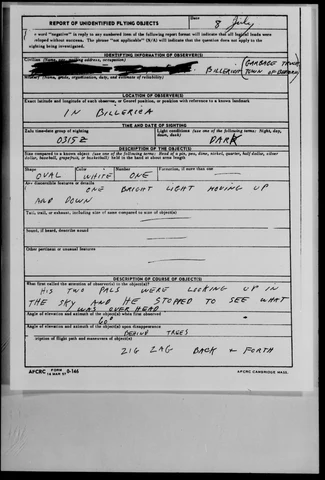 REPORT OF UNIDENTIFIED FLYING OBJECTS
Date
8 July
word "negative" is only reply to any numbered item of the following report format will indicate that all logical leads were
developed without success. The phrase "not applicable" (N/A) will indicate that the question does not apply to the
sighting being investigated.
IDENTIFYING INFORMATION OF OBSERVER(S)
Civilian (Name, age, mailing address, occupation)
BILLERICA (GARBAGE TRUCK
TOWN OF
Military (Name, grade, organization, duty, and estimate of reliability)
LOCATION OF OBSERVER(S)
Exact latitude and longitude of each observer, or Georef position, or position with reference to a known landmark
IN BILLERICA
TIME AND DATE OF SIGHTING
Zulu time-date group of sighting
Light conditions (use one of the following terms: Night, day, dawn, dusk)
0315Z
DARK
DESCRIPTION OF THE OBJECT(S)
Size compared to a known object (use one of the following terms: Head of a pin, pea, dime, nickel, quarter, half dollar, silver
dollar, baseball, grapefruit, or basketball) held in the hand at about arms length
Shape
Color
Number
Formation, if more than one
OVAL
WHITE
ONE
Any discernible features or details
ONE BRIGHT LIGHT MOVING UP
AND DOWN
Tail, trail, or exhaust, including size of same compared to size of object(s)
Sound, if heard, describe sound
Other pertinent or unusual features
DESCRIPTION OF COURSE OF OBJECT(S)
What first called the attention of observer(s) to the object(s)?
HIS TWO PALS WERE LOOKING UP IN
THE SKY AND HE STOPPED TO SEE WHAT
WAS OVER HEAD.
Angle of elevation and azimuth of the object(s) when first observed
60°
Angle of elevation and azimuth of object(s) upon disappearance
BEHIND TREES
Description of flight path and maneuvers of object(s)
ZIG ZAG BACK & FORTH
AFCRC FORM 0-146
18 MAR 57
AFCRC CAMBRIDGE MASS.